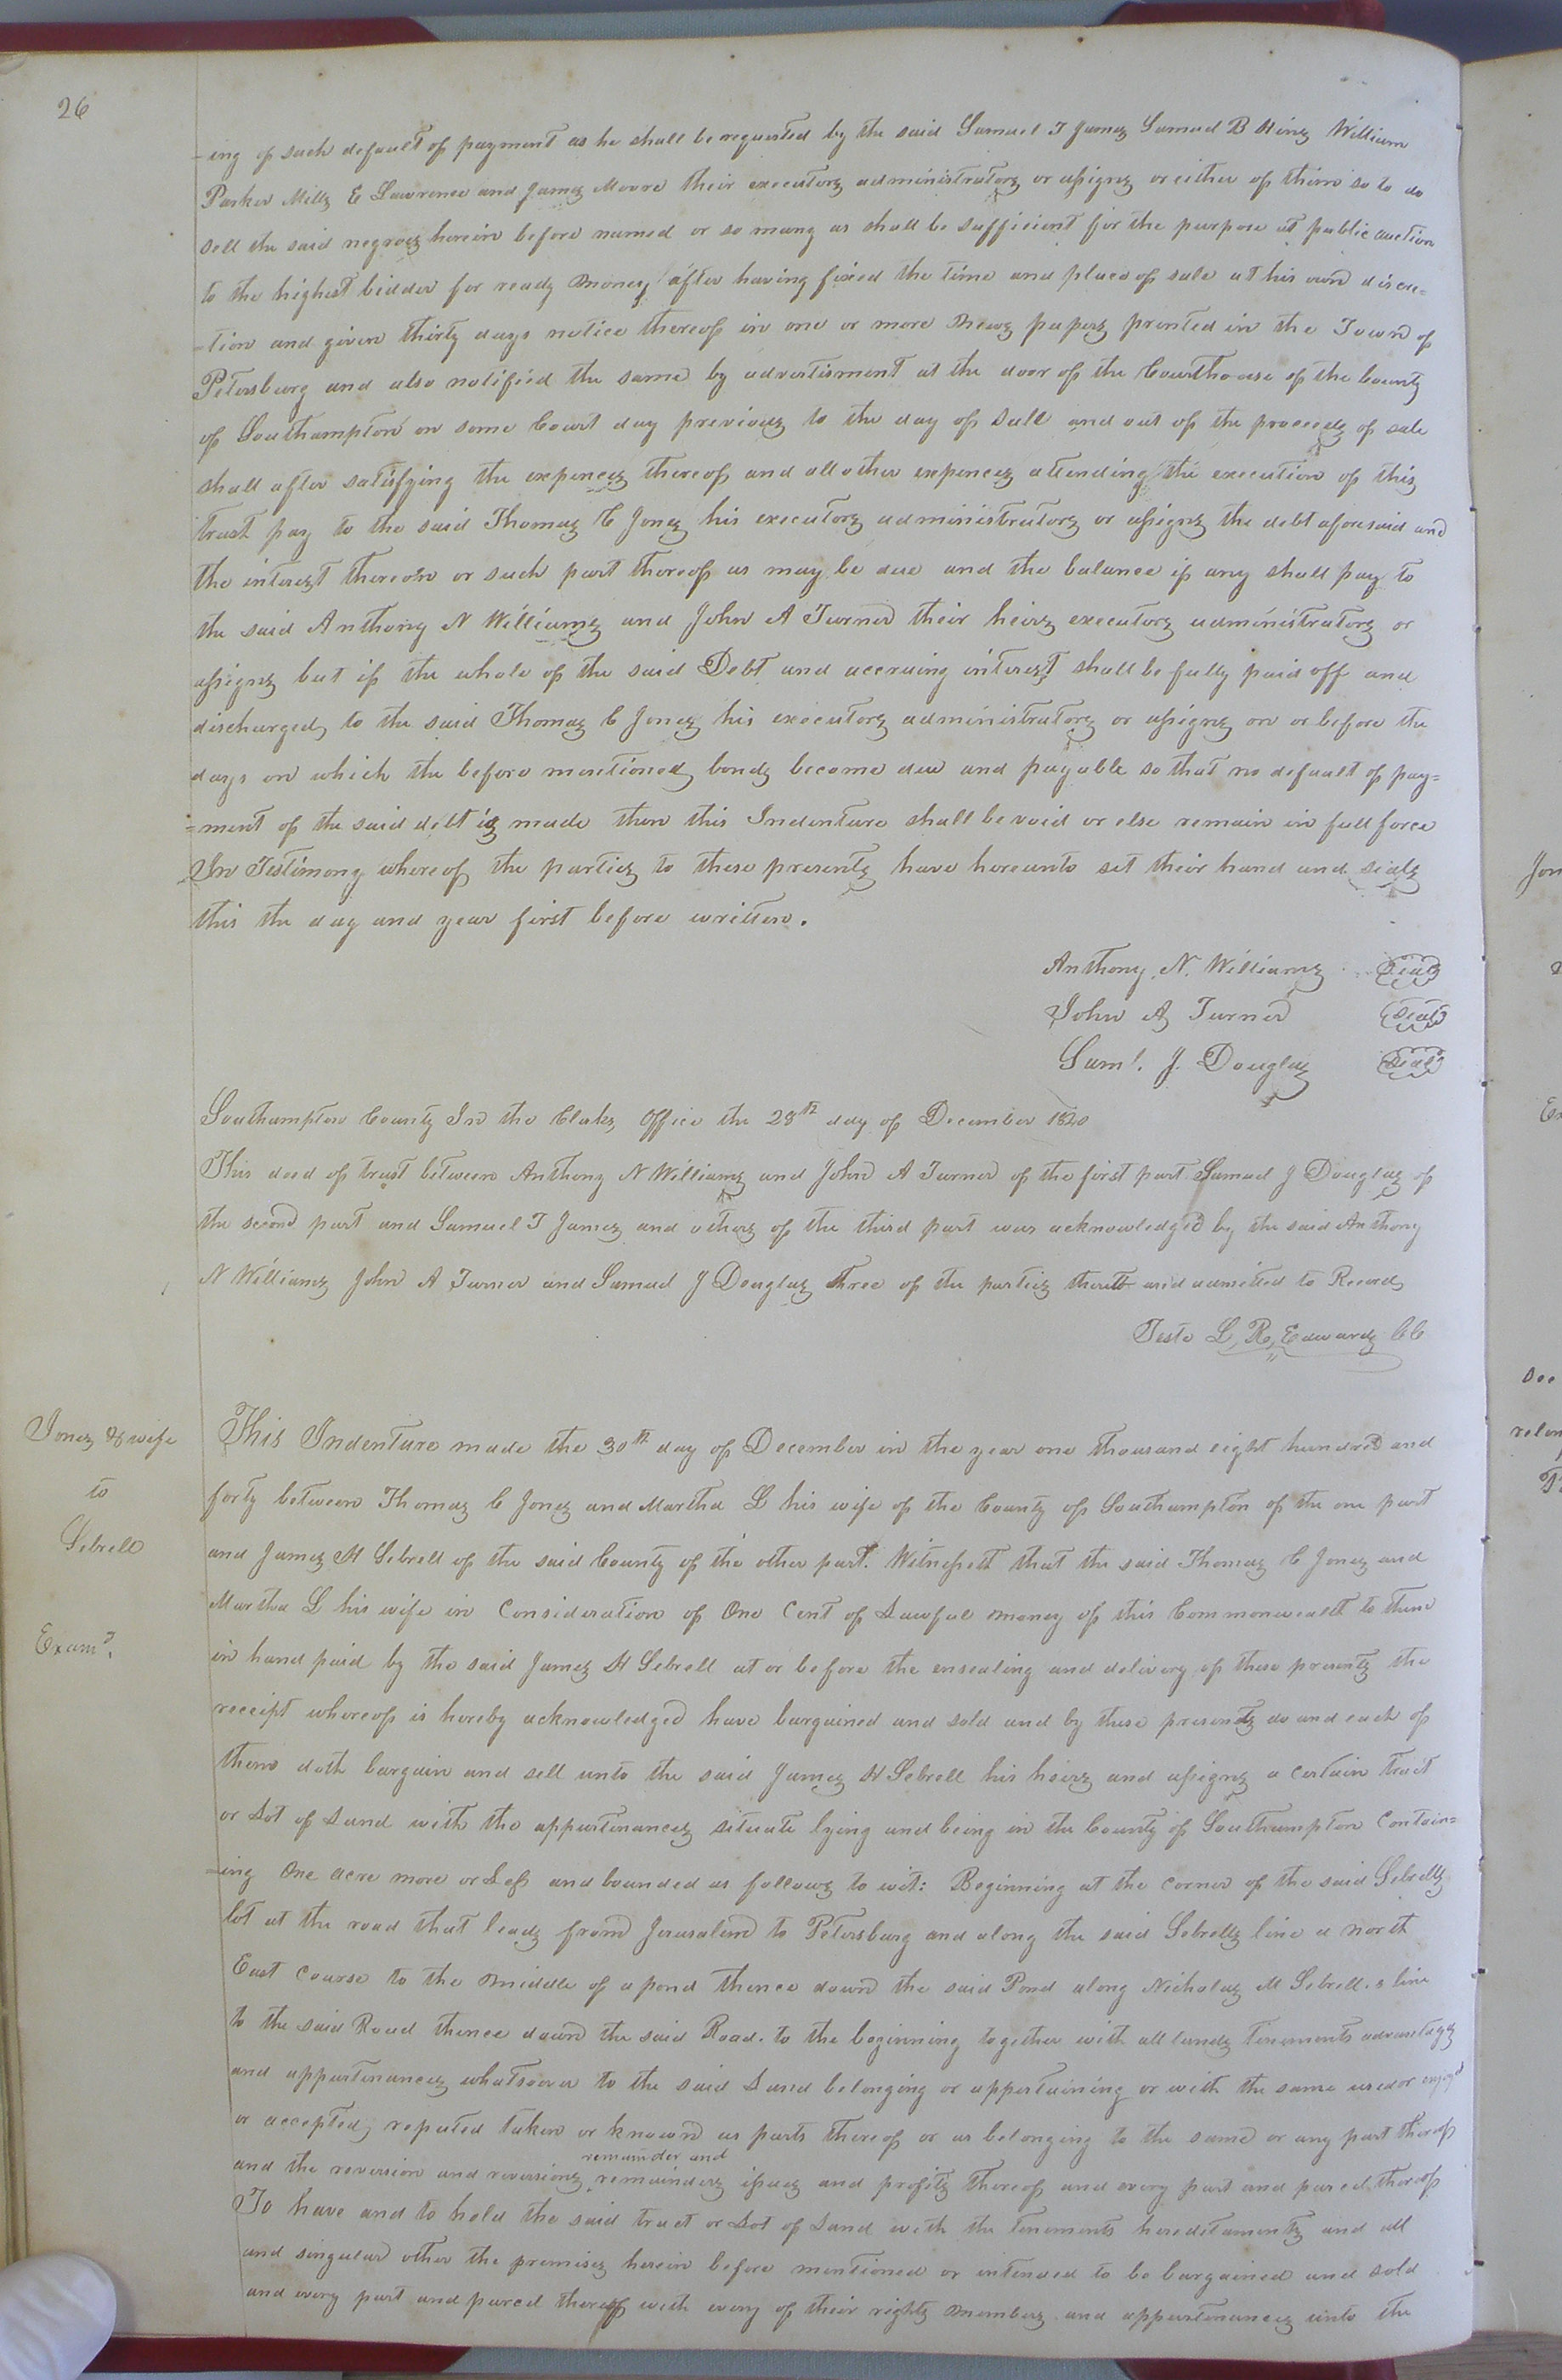 26
-ing of such default of payment as he shall be requested by the said Samuel T James Samuel B Hines William
Parker Mills E Lawrence and James Moore their executors administrators or assigns or either of them so to do
sell the said negroes herein before named or so many as shall be sufficient for the purpose at public auction
to the highest bidder for ready money after having fixed the time and place of sale at his own discre=
=tion and given thirty days notice thereof in one or more News papers printed in the Town of
Petersburg and also notified the same by advertisment at the door of the Courthouse of the County
of Southampton on some Court day previous to the day of sale and out of the proceeds of sale
shall after satisfying the expences thereof and all other expences attending the execution of this
trust pay to the said Thomas C Jones his executors administrators or assigns the debt aforesaid and
the interest thereon or such part thereof as may be due and the balance if any shall pay to
the said Anthony N Williams and John A Turner their heirs executors administrators or
assigns but if the whole of the said Debt and accruing interest shall be fully paid off and
discharged to the said Thomas C Jones his executors administrators or assigns on or before the
days on which the before mentioned bonds become due and payable so that no default of pay=
=ment of the said debt is made then this Indenture shall be void or else remain in full force
In Testimony whereof the parties to these presents have hereunto set their hand and seals
this the day and year first before written.
Anthony N. Williams Seal
John A Turner Seal
Saml. J. Douglas Seal
Southampton County In the Clerks Office the 28th day of December 1840
This deed of trust between Anthony N Williams and John A Turner of the first part Samuel J Douglas of
the second part and Samuel T James and others of the third part was acknowledged by the said Anthony
N Williams John A Turner and Samuel J Douglas three of the parties thereto and admitted to Record
Teste L, R, Edwards CC
Jones & wife
to
Sebrell
Examd.
This Indenture made the 30th day of December in the year one thousand eight hundred and
forty between Thomas C Jones and Martha L his wife of the County of Southampton of the one part
and James H Sebrell of the said County of the other part. Witnesseth that the said Thomas C Jones and
Martha L his wife in Consideration of One Cent of Lawful money of this Commonwealth to them
in hand paid by the said James H Sebrell at or before the ensealing and delivery of these presents the
receipt whereof is hereby acknowledged have bargained and sold and by these presents do and each of
them doth bargain and sell unto the said James H Sebrell his heirs and assigns a certain tract
or Lot of Land with the appurtenances situate lying and being in the County of Southampton Contain=
=ing One acre more or Less and bounded as follows to wit: Beginning at the corner of the said Sebrells
lot at the road that leads from Jerusalem to Petersburg and along the said Sebrells line a north
East course to the middle of a pond thence down the said Pond along Nicholas M Sebrell.s line
to the said Road thence down the said Road. to the beginning together with all lands tenements advantages
and appurtenances whatsoever to the said Land belonging or appertaining or with the same used or enjoyd
or accepted, reputed taken or known as parts thereof or as belonging to the same or any part thereof
remainder and
and the reversion and reversions remainders issues and profits thereof and every part and parcel thereof
To have and to hold the said tract or Lot of Land with the tenements hereditaments and all
and singular other the premises herein before mentioned or intended to be bargained and sold
and every part and parcel thereof with every of their rights members and appurtenances unto the